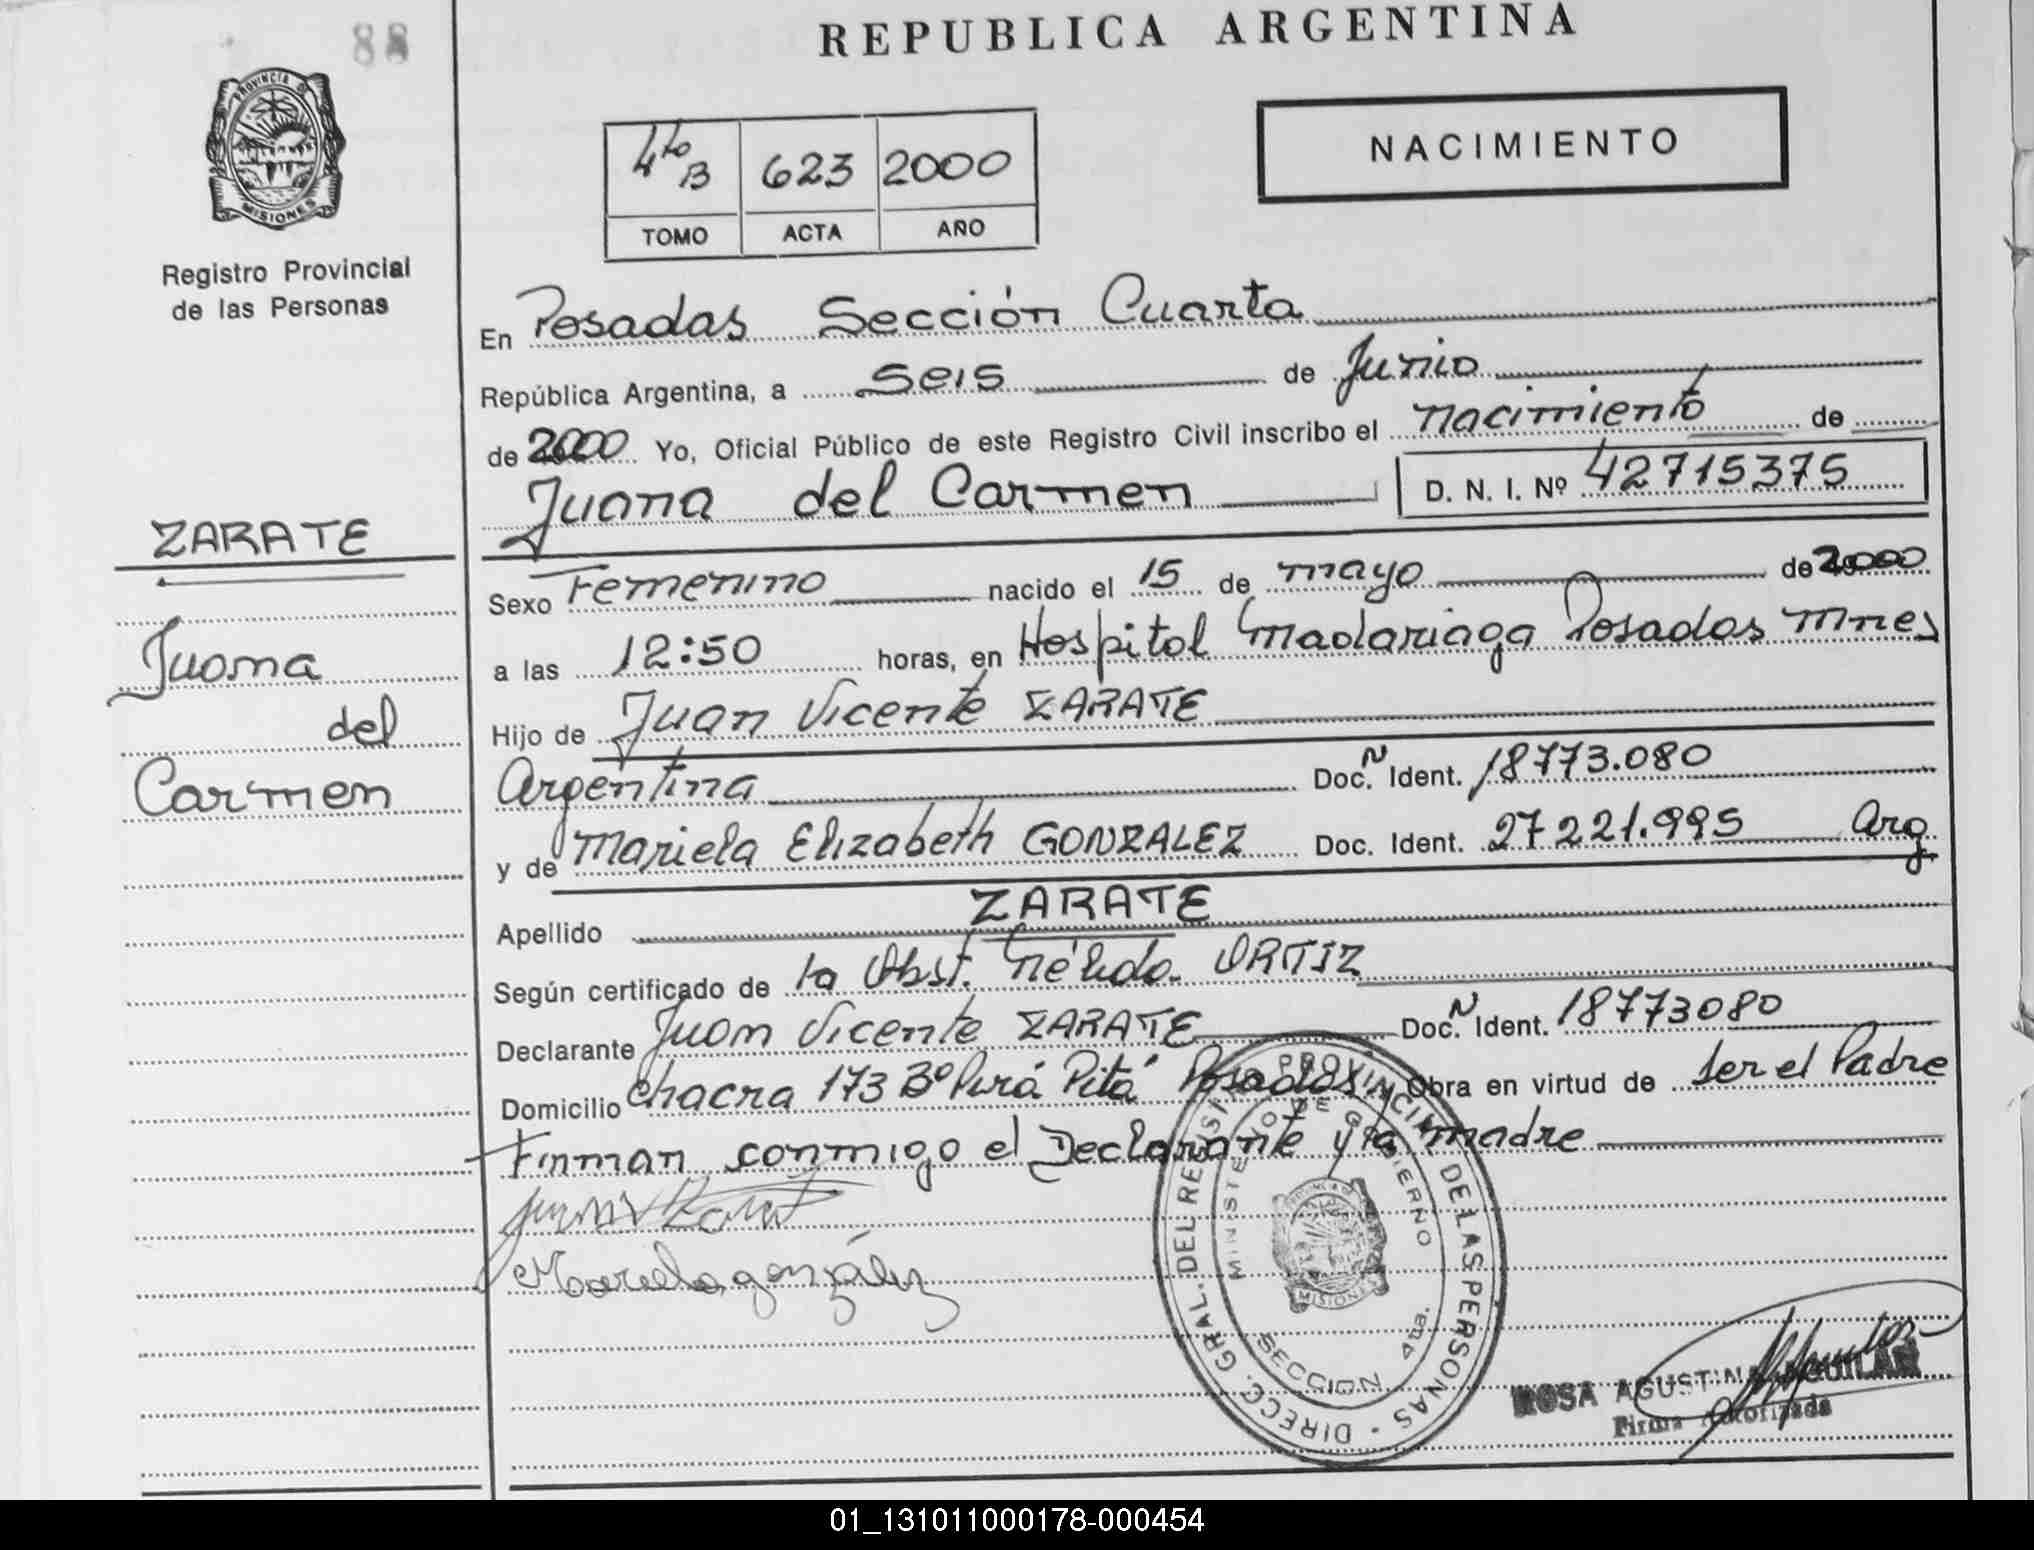 88
REPUBLICA ARGENTINA
PROVINCIA DE
MISIONES
Registro Provincial
de las Personas
4to B 623 2000
TOMO ACTA AÑO
NACIMIENTO
En Posadas Sección Cuarta
República Argentina, a seis de Junio
de 2000 Yo, Oficial Público de este Registro Civil inscribo el nacimiento de
Juana del Carmen D. N. I. Nº 42715375
ZARATE
Juana
del
Carmen
Sexo Femenino nacido el 15 de mayo de 2000
a las 12:50 horas, en Hospital Madariaga Posadas Mnes
Hijo de Juan Vicente ZARATE
Argentina Doc. N Ident. 18773.080
y de Mariela Elizabeth GONZALEZ Doc. Ident. 27221.995 Arg
Apellido ZARATE
Según certificado de la Obst. Nélida ORTIZ
Declarante Juan Vicente ZARATE Doc. N Ident. 18773080
Domicilio Chacra 173 Bº Purá Pitá Posadas Obra en virtud de ser el Padre
Firman conmigo el Declarante y la madre
Juan V Zarat
Mariela gonzález
DIRECC. GRAL. DEL REGISTRO PROVINCIAL DE LAS PERSONAS
MINISTERIO DE GOBIERNO
MISIONES
SECCION 4ta.
ROSA AGUSTINA AGUILAR
Firma Autorizada
01_131011000178-000454